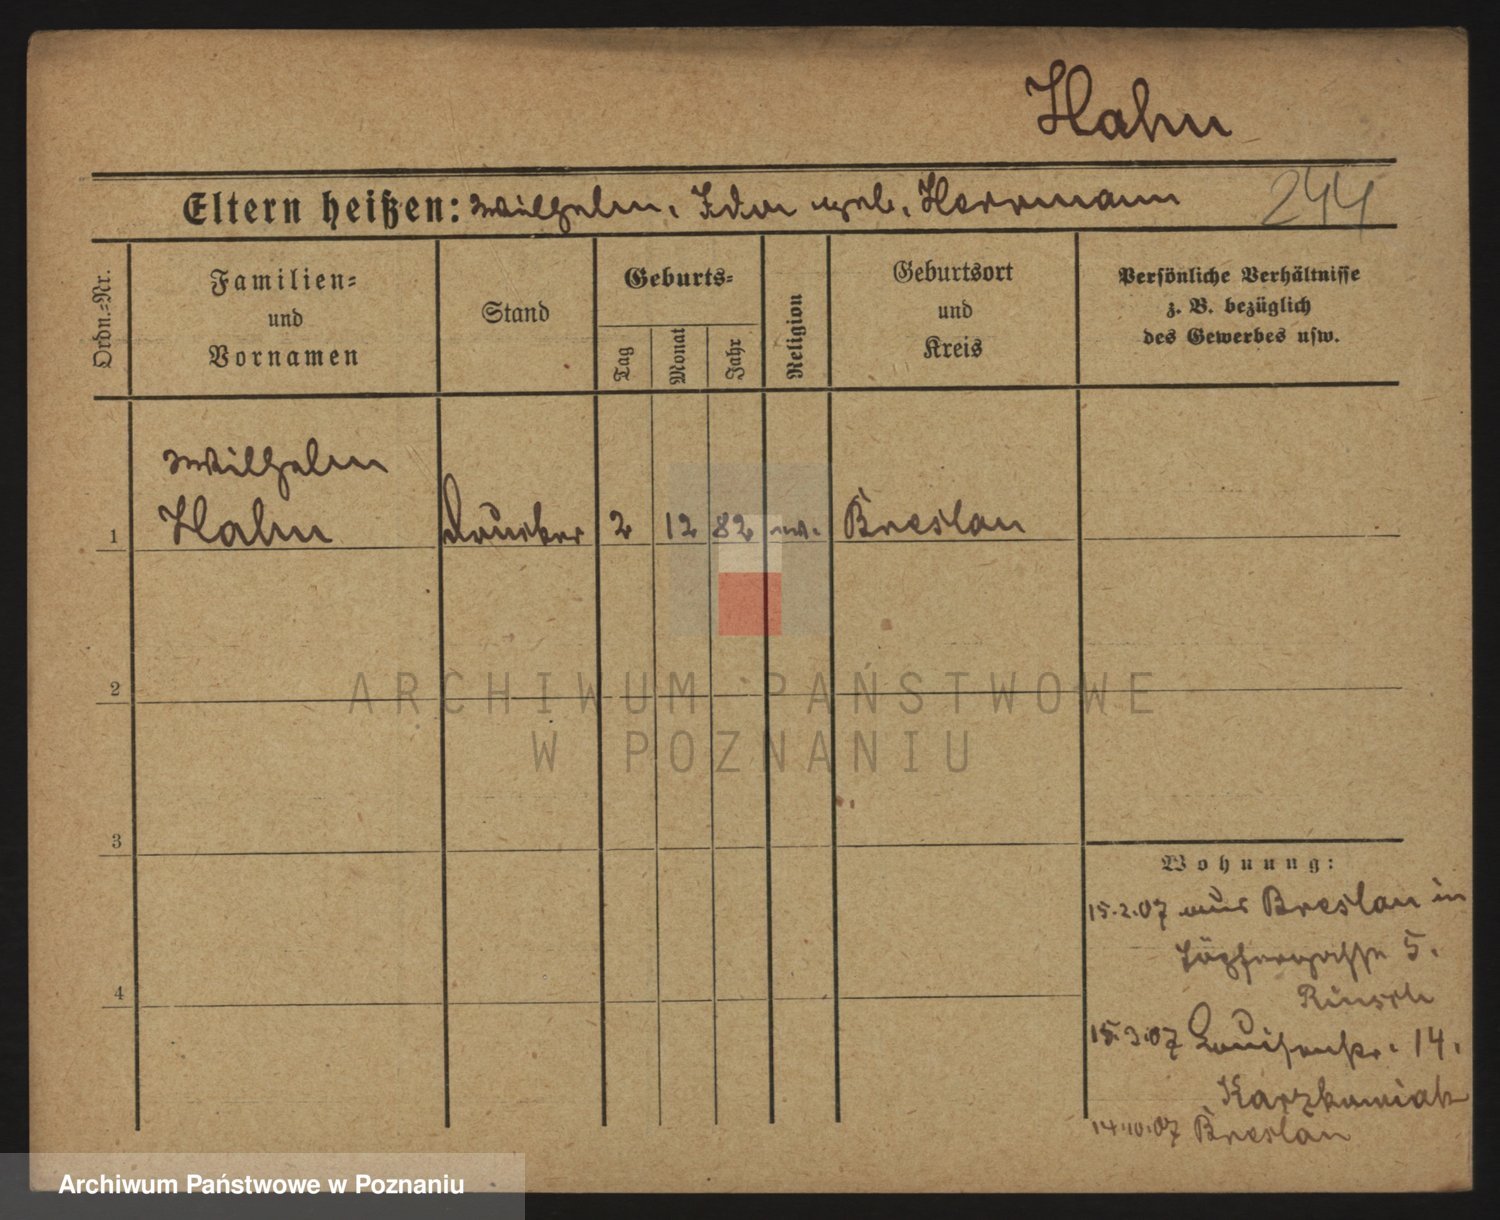 Hahn
Eltern heißen: Wilhelm, Ida geb. Herrmann 244
Ordn.=Nr.
Familien=
und
Vornamen
Stand
Geburts=
Tag
Monat
Jahr
Religion
Geburtsort
und
Kreis
Persönliche Verhältnisse
z. B. bezüglich
des Gewerbes usw.
Wilhelm
1 Hahn Drucker 2 12 82 ev. Breslau
2
ARCHIWUM PAŃSTWOWE
W POZNANIU
3
Wohnung:
15.2.07 aus Breslau in
Töpfergasse 5.
4
15.3.07 Louisenstr. 14.
14.10.07 Breslau
Archiwum Państwowe w Poznaniu